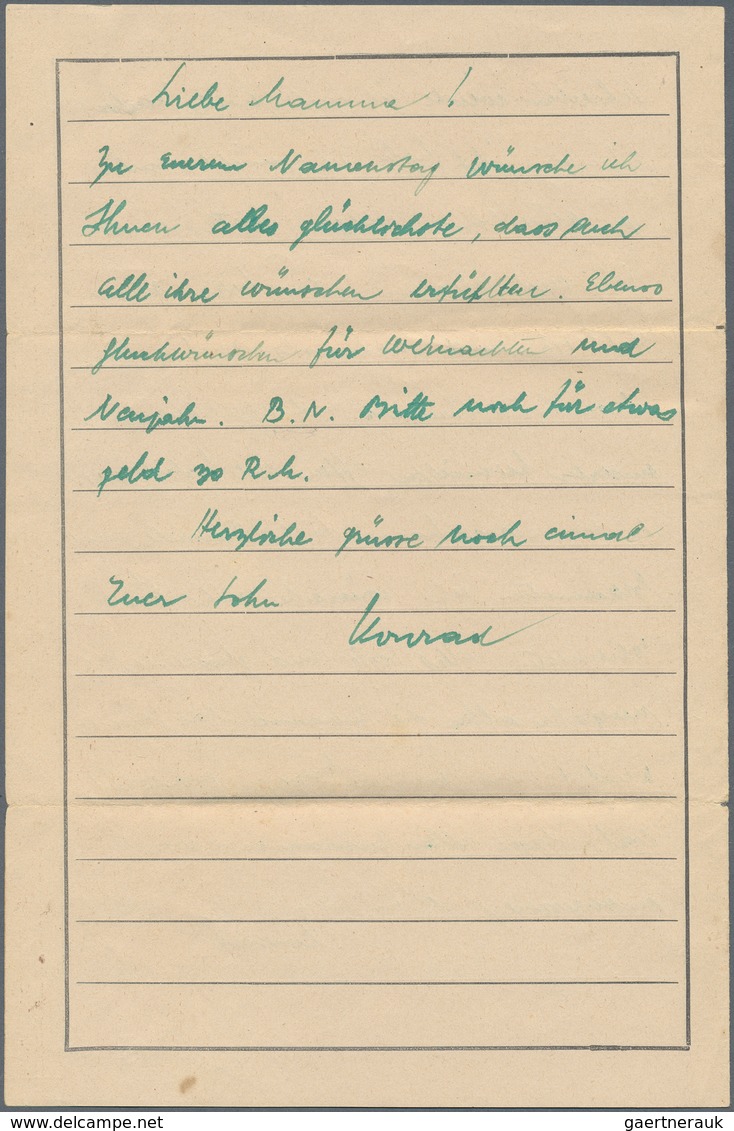 Liebe Mamma !
Zu Eueren Namenstag wünsche ich
Ihnen alles glücklichste, dass auch
alle ihre wünschen erfühlten. Ebenso
gluckwünschen für weinachten und
Neujahr. B. N. Bitte noch für etwas
geld 30 R.M.
Herzliche grüsse noch einmal
Euer Sohn Konrad
delcampe.net
gaertnerauk